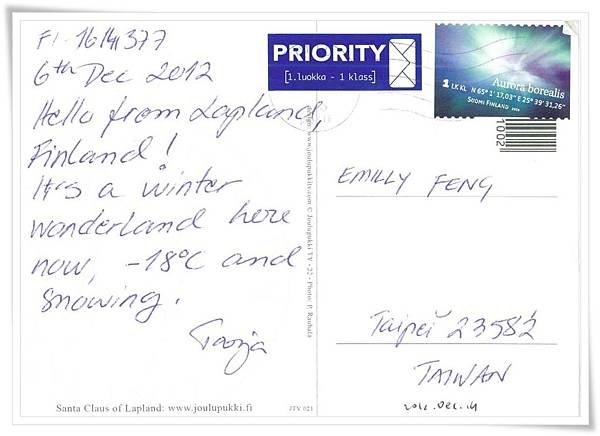 FI-1614377
6th Dec 2012
Hello from Lapland,
Finland!
It's a winter
wonderland here
now, -18°C and
snowing.
Tarja
Santa Claus of Lapland: www.joulupukki.fi
JTV 021
www.joulupukkitv.com © Joulupukki TV • 22 • Photo: P. Rauhala
PRIORITY
[1.luokka - 1 klass]
Aurora borealis
1 LK KL N 65° 1' 17,03" E 25° 39' 31,26"
SUOMI FINLAND
1002
EMILLY FENG
Taipei 23582
TAIWAN
2012.DEC.14